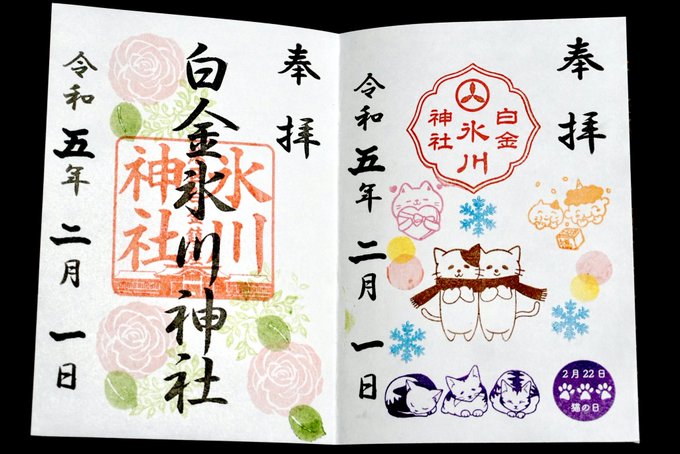 奉拝
白金
氷川
神社
令和五年二月一日
2月22日
猫の日
奉拝
白金氷川神社
氷川
神社
令和五年二月一日